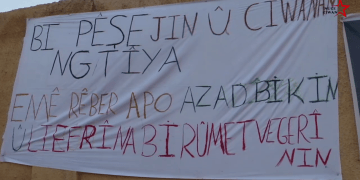 BI PÊŞEJIN Û CIWANAN
NGTÎYA
EMÊ RÊBER APO AZAD BIKIN
Û LI EFRÎNA BI RÛMET VEGERI
NIN